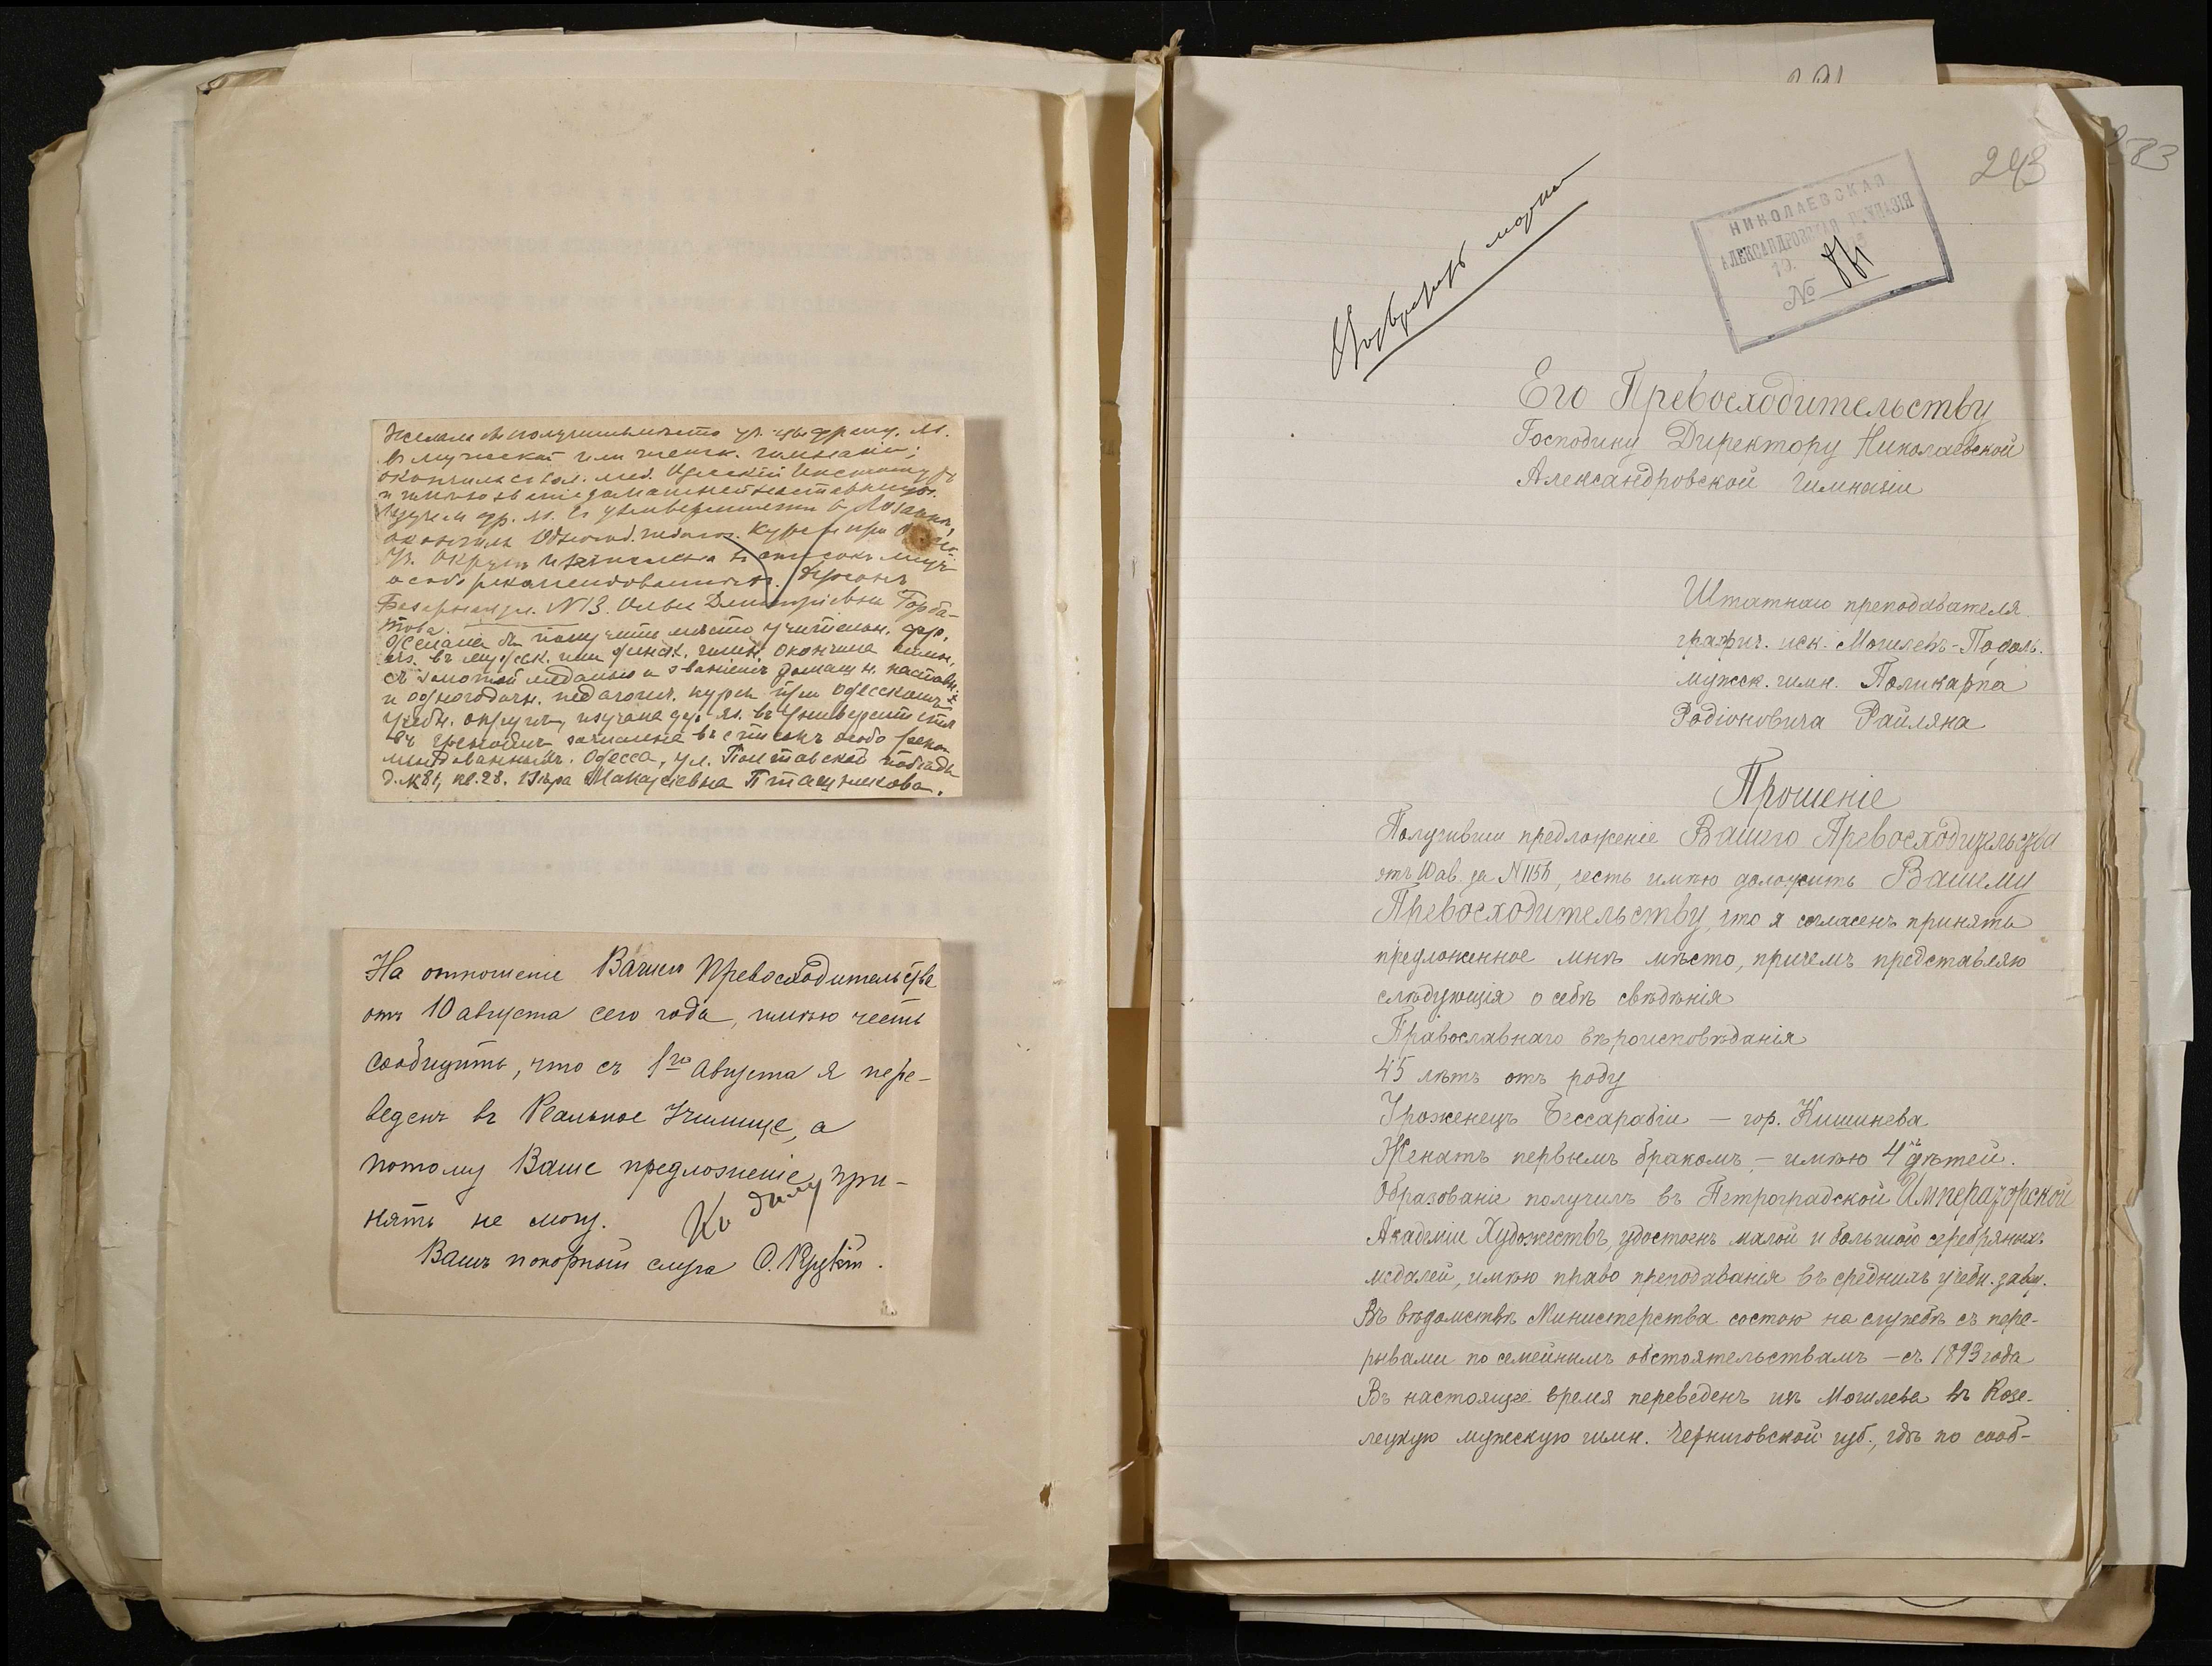 Желала бы получить место уч-цы франц. яз.
въ мужской или женск. гимназіи;
окончила съ зол. мед. Одесскій Институтъ
и имѣю званіе домашней наставницы.
Изучала фр. яз. въ университетѣ въ Лозаннѣ,
окончила Одногод. педагог. курсы при
Уч. Округѣ и зачислена въ списокъ лицъ
особо рекомендованныхъ. Херсонъ
Базарная ул. N13. Ольга Дмитріевна Горба-
това.
Желала бы получить мѣсто учительн. фр.
яз. въ мужск. или женск. гимн. окончила гимн.
съ золотой медалью и званіемъ домашн. наставн.
и одногодичн. педагогич. курсы при Одесскомъ
Учебн. округѣ, изучала фр. яз. въ Университетѣ
въ Греноблѣ зачислена въ списокъ особо реко-
мендованныхъ. Одесса, ул. Полтавской победы
д. №81, кв. 28. Вѣра Макарьевна Пташникова.
На отношеніе Вашего Превосходительства
отъ 10 августа сего года, имѣю честь
сообщить, что съ 1го Августа я пере-
веденъ въ Реальное Училище, а
потому Ваше предложеніе при-
нять не могу.
Къ дѣлу
Вашъ покорный слуга О.
243
НИКОЛАЕВСКАЯ
АЛЕКСАНДРОВСКАЯ ГИМНАЗІЯ
19
№
Его Превосходительству
Господину Директору Николаевской
Александровской гимназіи
Штатнаго преподавателя
графич. иск. Могилевъ-Подоль.
мужск. гимн. Поликарпа
Родіоновича Райляна
Прошеніе
Получивши предложеніе Вашего Превосходительства
отъ 10 ав. за N1156, честь имѣю доложить Вашему
Превосходительству, что я согласенъ принять
предложенное мнѣ мѣсто, причемъ представляю
слѣдующія о себѣ свѣдѣнія
Православнаго вѣроисповѣданія
45 лѣтъ отъ роду
Уроженецъ Бессарабіи — гор. Кишинева
Женатъ первымъ бракомъ, — имѣю 4хъ дѣтей.
Образованіе получилъ въ Петроградской Императорской
Академіи Художествъ, удостоенъ малой и большой серебряныхъ
медалей, имѣю право преподаванія въ среднихъ учебн. завед.
Въ вѣдомствѣ Министерства состою на службѣ съ пере-
рывами по семейнымъ обстоятельствамъ — съ 1893 года
Въ настоящее время переведенъ изъ Могилева въ Козе-
лецкую мужскую гимн. Черниговской губ., гдѣ по сооб-